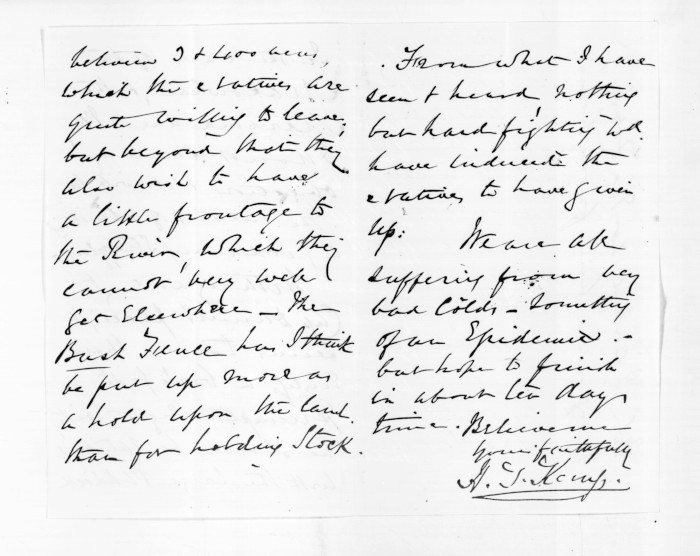 between 3 & 400 acres,
which the Natives are
quite willing to leave,
but beyond that they
also wish to have
a little frontage to
the River, which they
cannot very well
get Elsewhere - The
Bush Fence has I think
be put up more as
a hold upon the land.
than for holding Stock.
From what I have
seen & heard, nothing
but hard fighting wd.
have induced the
Natives to have given
up: We are all
suffering from very
bad Colds - Something
of an Epidemic. -
but hope to finish
in about ten days
time. Believe me
yours faithfully
H. T. Kemp.